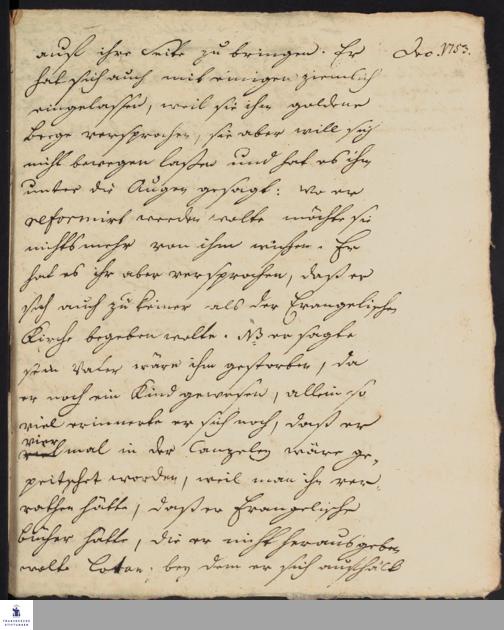 auf ihre Seite zu bringen. Er
Dec. 1753.
hat sich auch mit einigen ziemlich
eingelassen, weil sie ihm goldene
Berge versprochen, sie aber will sich
nicht bewegen lassen und hat es ihm
unter die Augen gesagt: wo er
reformirt werden wolte möchte sie
nichts mehr von ihm wissen. Er
hat es ihr aber versprochen, daß er
sich auch zu keiner als der Evangelischen
Kirche begeben wolte. NB er sagte
sein Vater wäre ihm gestorben, da
er noch ein Kind gewesen, allein so
viel erinnerte er sich noch, daß er
vier
mal in der Canzeley wäre ge-
peitschet worden, weil man ihn ver-
rathen hätte, daß er Evangelische
bücher hätte, die er nicht herausgeben
wolte bey dem er sich aufhält
FRANCKESCHE
STIFTUNGEN